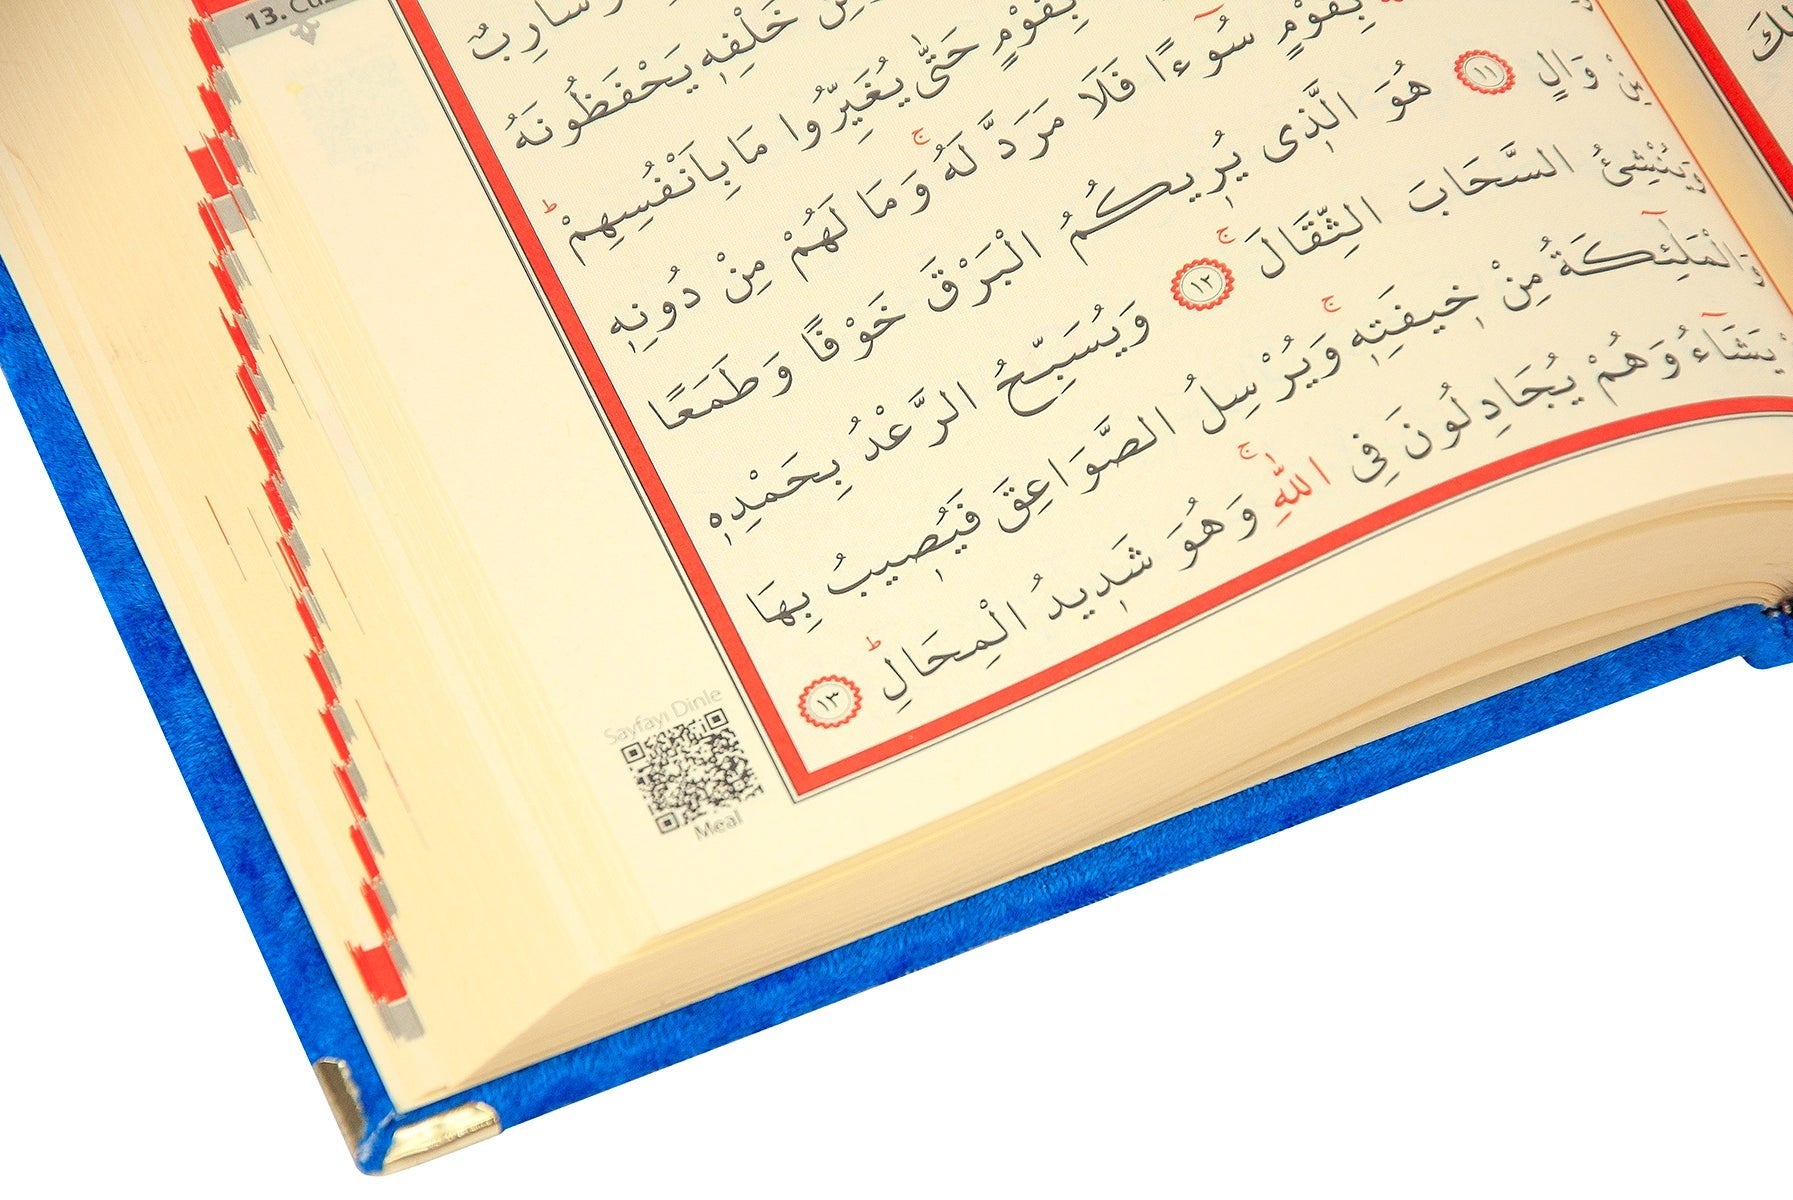 13. Cüz
سَارِبٌ
خَلْفِه۪ يَحْفَظُونَهُ
بِقَوْمٍ حَتّٰى يُغَيِّرُوا مَا بِاَنْفُسِهِمْۜ
بِقَوْمٍ سُٓوءًا فَلَا مَرَدَّ لَهُۚ وَمَا لَهُمْ مِنْ دُونِه۪
مِنْ وَالٍ ١١ هُوَ الَّذ۪ى يُر۪يكُمُ الْبَرْقَ خَوْفًا وَطَمَعًا
وَيُنْشِئُ السَّحَابَ الثِّقَالَۚ ١٢ وَيُسَبِّحُ الرَّعْدُ بِحَمْدِه۪
وَالْمَلٰٓئِكَةُ مِنْ خ۪يفَتِه۪ۚ وَيُرْسِلُ الصَّوَاعِقَ فَيُص۪يبُ بِهَا
يَشَٓاءُ وَهُمْ يُجَادِلُونَ فِى اللّٰهِۚ وَهُوَ شَد۪يدُ الْمِحَالِۜ ١٣
Sayfayı Dinle
Meal